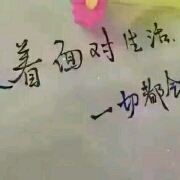 着面对生活
一切都会